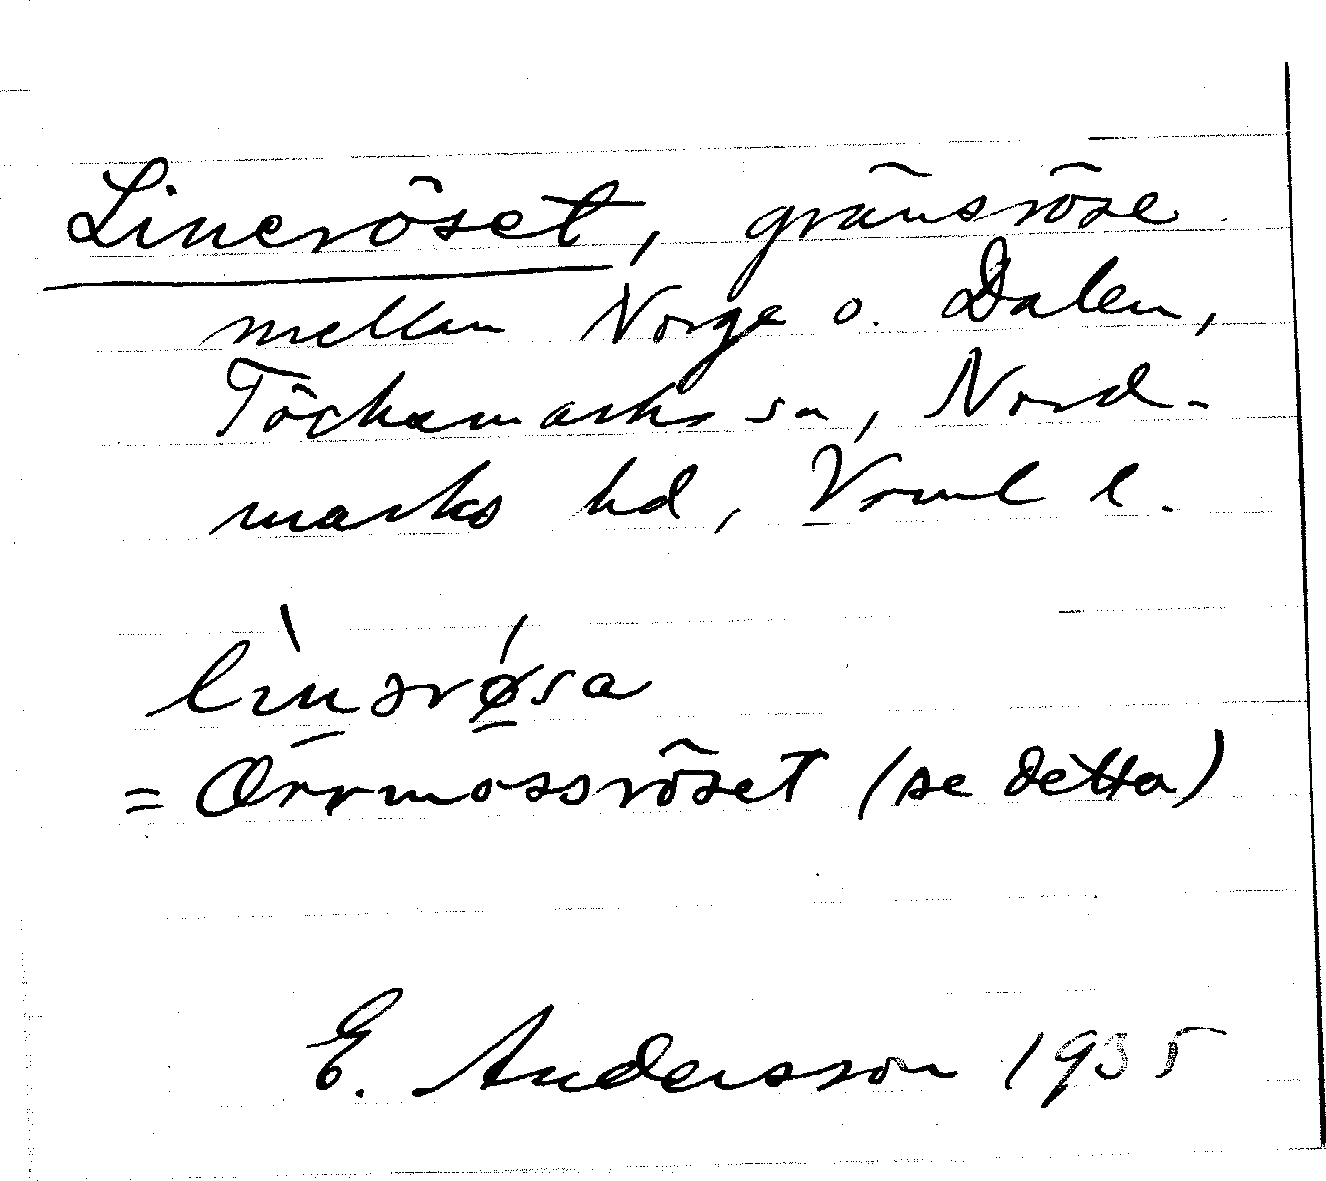 Lineröset, gränsröse
mellan Norge o. Dalen,
Töcksmarks sn, Nord-
marks hd, Vrml l.
lìnərǿsa
= Orrmossröset (se detta)
E. Andersson 1935